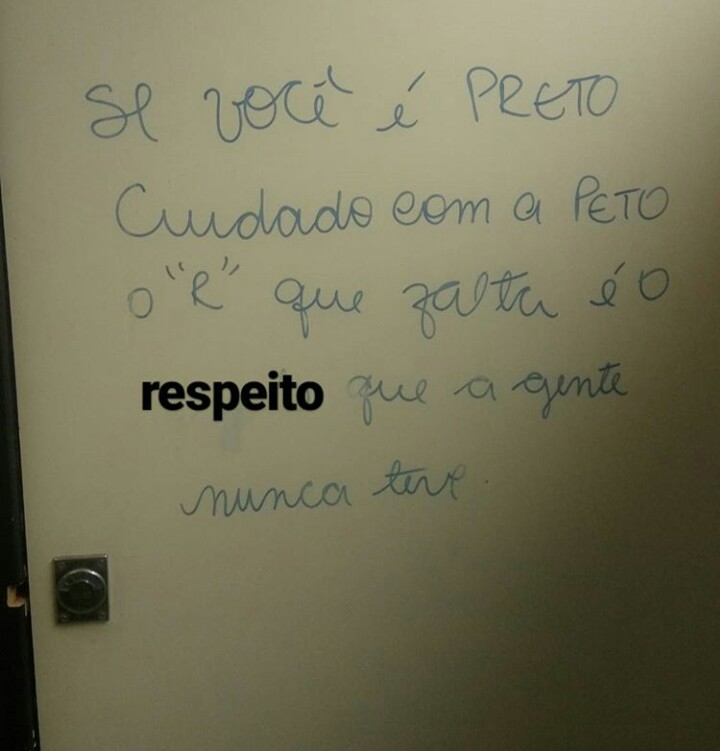 Se você é PRETO
Cuidado com a PETO
o "R" que falta é o
respeito que a gente
nunca teve.